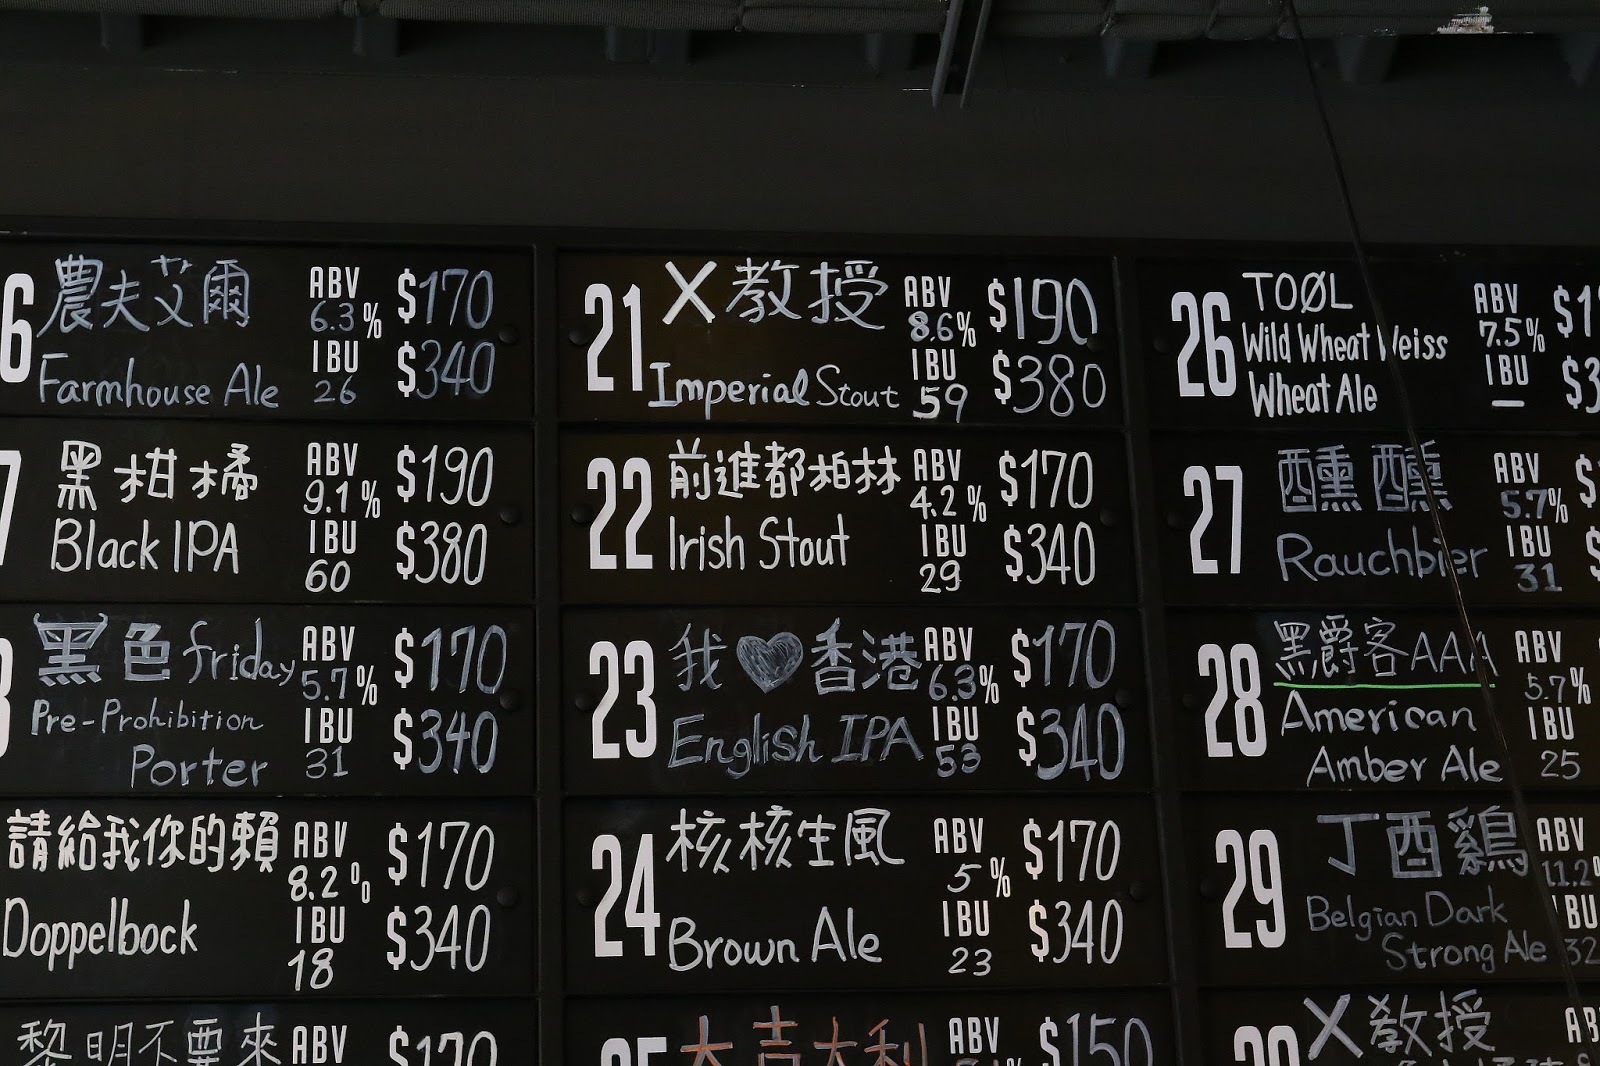 6 農夫艾爾 ABV 6.3% $170
Farmhouse Ale IBU 26 $340
7 黑柑橘 ABV 9.1% $190
Black IPA IBU 60 $380
黑色friday ABV 5.7% $170
Pre-Prohibition
Porter IBU 31 $340
請給我你的賴 ABV 8.2% $170
Doppelbock IBU 18 $340
黎明不要來 ABV $170
21 X教授 ABV 8.6% $190
Imperial Stout IBU 59 $380
22 前進都柏林 ABV 4.2% $170
Irish Stout IBU 29 $340
23 我♥香港 ABV 6.3% $170
English IPA IBU 53 $340
24 核核生風 ABV 5% $170
Brown Ale IBU 23 $340
25 大吉大利 ABV $150
26 TOØL ABV 7.5%
Wild Wheat Weiss
Wheat Ale IBU —
27 醺醺 ABV 5.7%
Rauchbier IBU 31
28 黑爵客AAA ABV 5.7%
American
Amber Ale IBU 25
29 丁酉鷄 ABV 11.2%
Belgian Dark
Strong Ale IBU 32
30 X教授